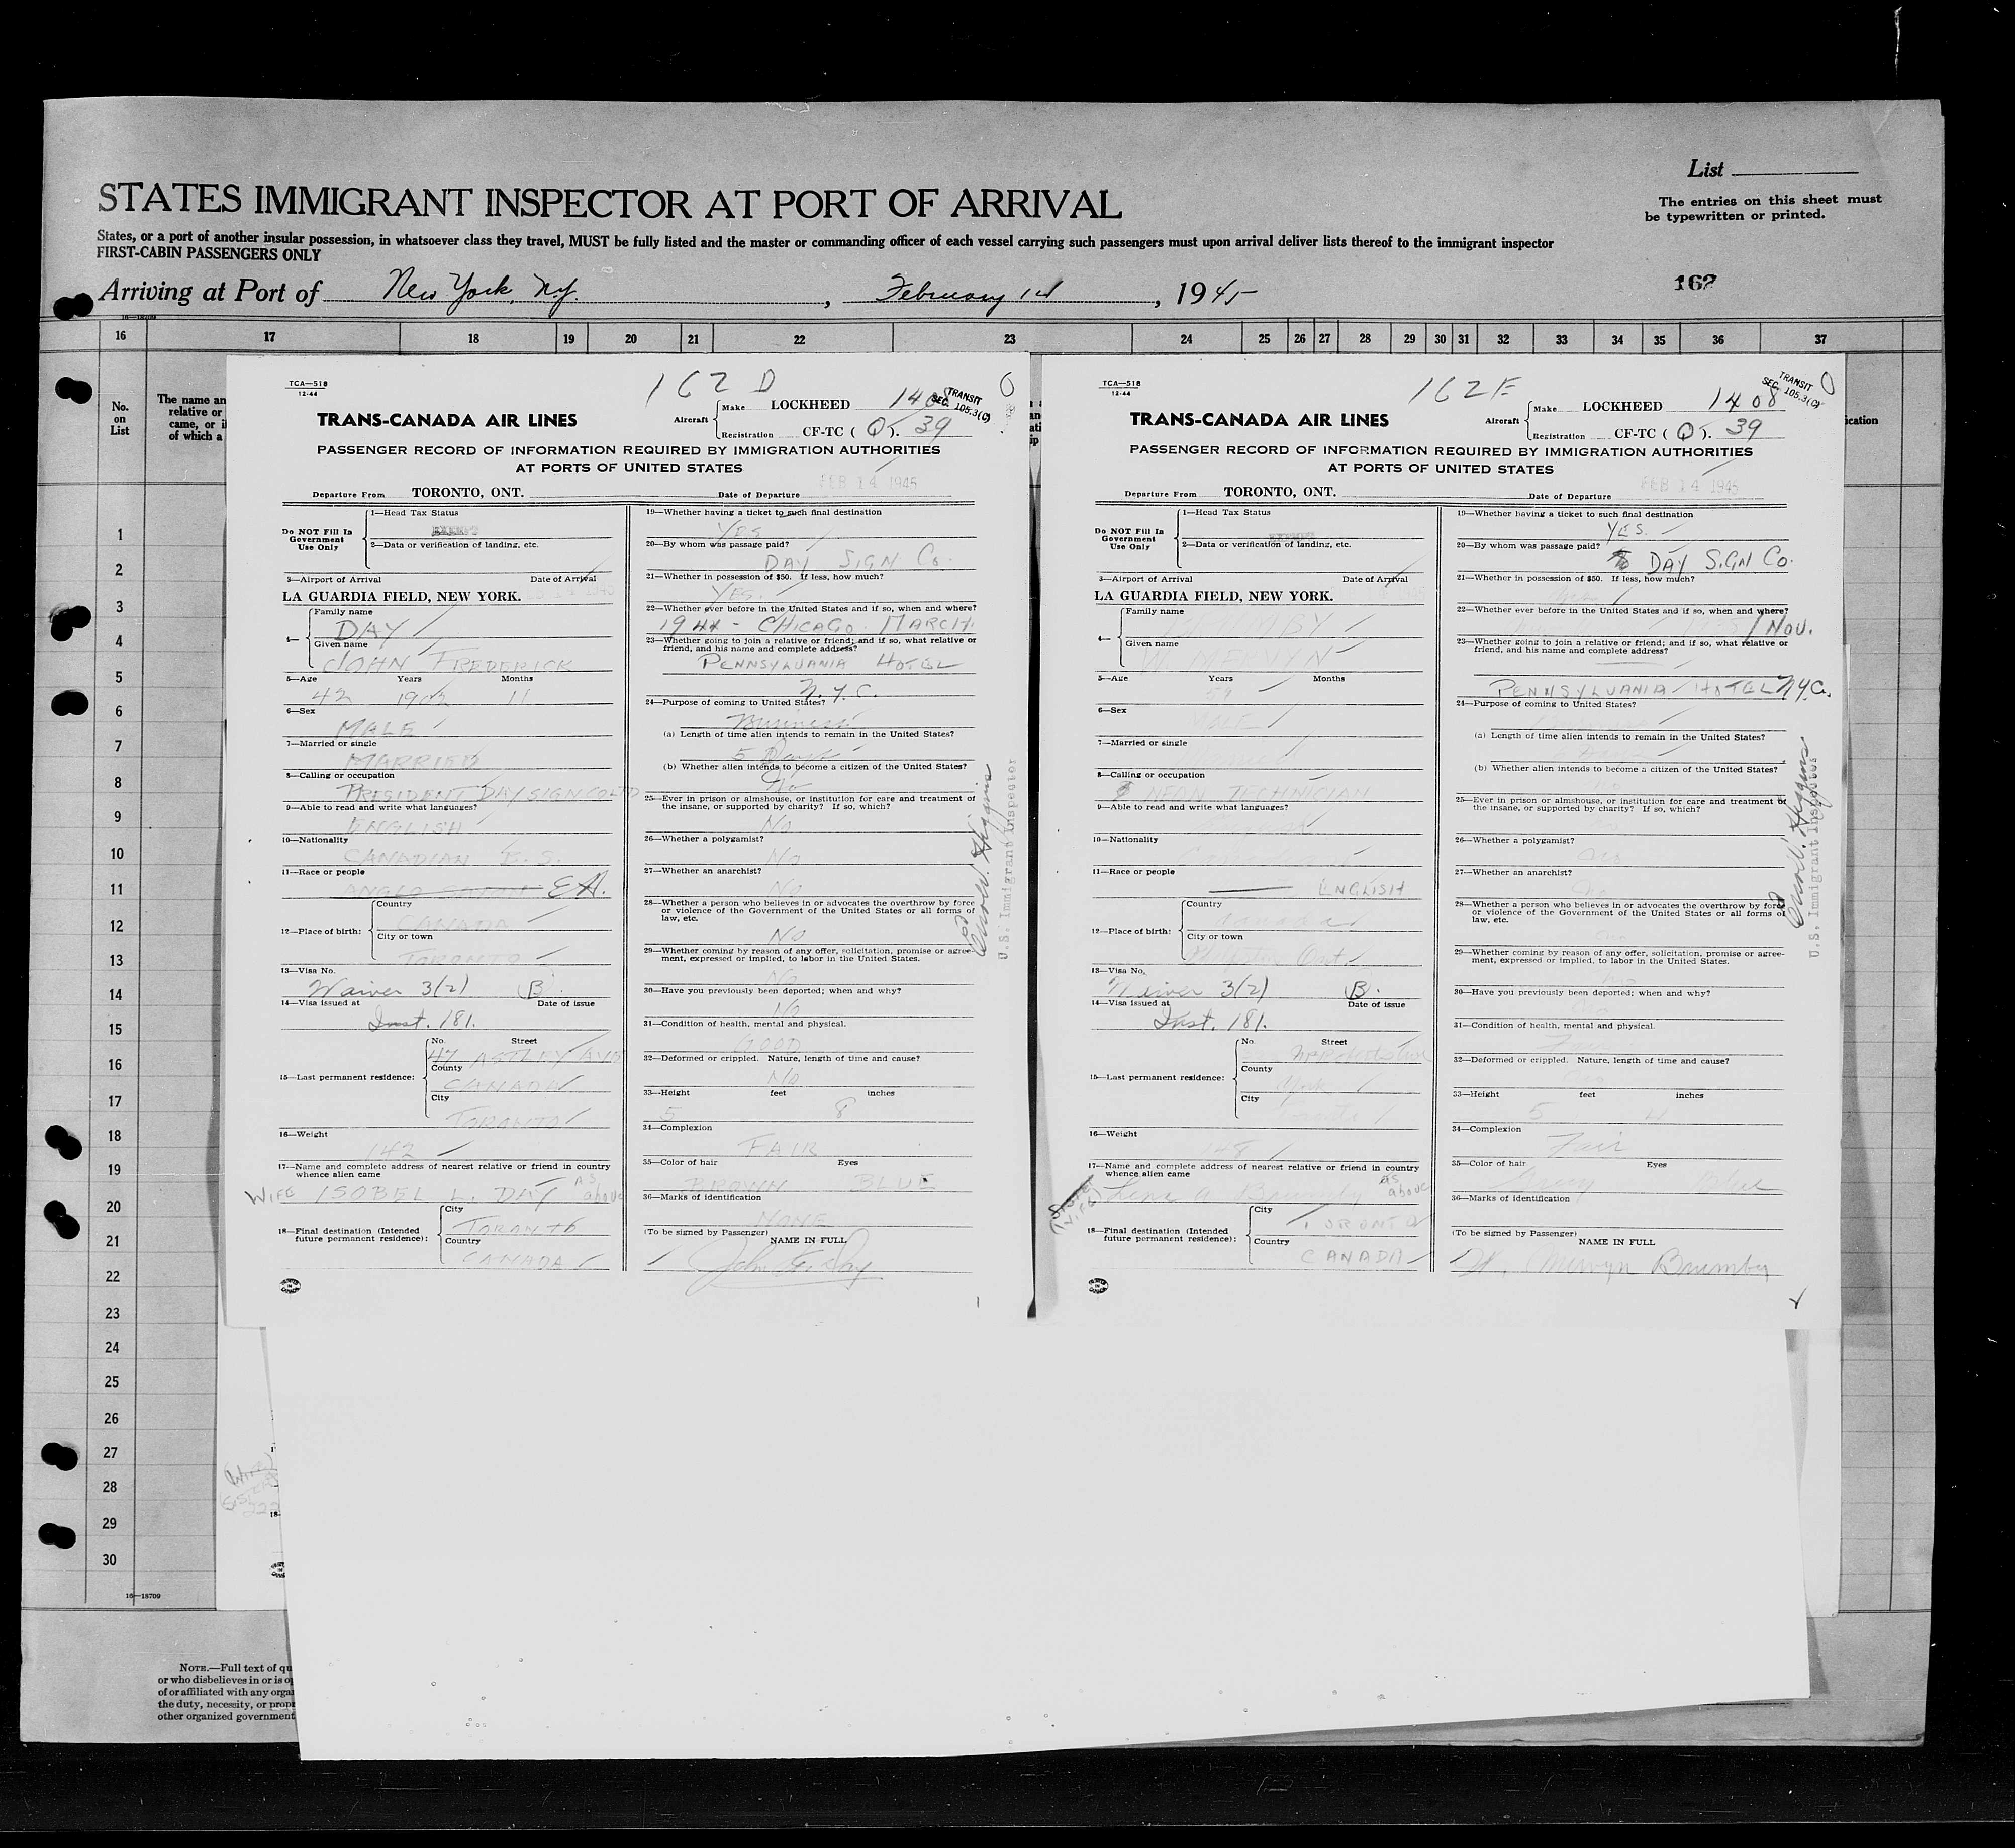 List
STATES IMMIGRANT INSPECTOR AT PORT OF ARRIVAL
The entries on this sheet must
be typewritten or printed.
States, or a port of another insular possession, in whatsoever class they travel, MUST be fully listed and the master or commanding officer of each vessel carrying such passengers must upon arrival deliver lists thereof to the immigrant inspector
FIRST-CABIN PASSENGERS ONLY
Arriving at Port of New York, N.Y., February 14, 1945
162
16—18709
16 17 18 19 20 21 22 23 24 25 26 27 28 29 30 31 32 33 34 35 36 37
No.
on
List
The name an
relative or
came, or i
of which a
ication
1
2
3
4
5
6
7
8
9
10
11
12
13
14
15
16
17
18
19
20
21
22
23
24
25
26
27
28
29
30
16—18709
NOTE.—Full text of qu
or who disbelieves in or is o
of or affiliated with any orga
the duty, necessity, or prop
other organized government
TCA—518
12-44
162 D
TRANSIT
SEC. 105.3(C)
TRANS-CANADA AIR LINES
Aircraft
Make LOCKHEED
Registration CF-TC ( Q ). 39
PASSENGER RECORD OF INFORMATION REQUIRED BY IMMIGRATION AUTHORITIES
AT PORTS OF UNITED STATES
Departure From TORONTO, ONT. Date of Departure FEB 14 1945
Do NOT Fill In
Government
Use Only
1—Head Tax Status
2—Data or verification of landing, etc.
3—Airport of Arrival Date of Arrival
LA GUARDIA FIELD, NEW YORK.
4—
Family name
DAY
Given name
JOHN FREDERICK
5—Age Years Months
42 1902 11
6—Sex
MALE
7—Married or single
MARRIED
8—Calling or occupation
PRESIDENT DAY SIGN CO LTD
9—Able to read and write what languages?
ENGLISH
10—Nationality
CANADIAN
11—Race or people
12—Place of birth:
Country
CANADA
City or town
TORONTO
13—Visa No.
Waiver 3(2) B.
14—Visa issued at Date of issue
Inst. 181.
15—Last permanent residence:
No. Street
47 ASTLEY AVE
County
CANADA
City
TORONTO
16—Weight
142
17—Name and complete address of nearest relative or friend in country
whence alien came
WIFE ISOBEL L. DAY AS above
18—Final destination (Intended
future permanent residence):
City
TORONTO
Country
CANADA
19—Whether having a ticket to such final destination
YES
20—By whom was passage paid?
DAY SIGN Co
21—Whether in possession of $50. If less, how much?
YES.
22—Whether ever before in the United States and if so, when and where?
1944 - CHICAGO. MARCH.
23—Whether going to join a relative or friend; and if so, what relative or
friend, and his name and complete address?
PENNSYLVANIA HOTEL
N.Y.C.
24—Purpose of coming to United States?
Business
(a) Length of time alien intends to remain in the United States?
5 Days
(b) Whether alien intends to become a citizen of the United States?
No
25—Ever in prison or almshouse, or institution for care and treatment of
the insane, or supported by charity? If so, which?
No
26—Whether a polygamist?
No
27—Whether an anarchist?
No
28—Whether a person who believes in or advocates the overthrow by force
or violence of the Government of the United States or all forms of
law, etc.
No
29—Whether coming by reason of any offer, solicitation, promise or agree-
ment, expressed or implied, to labor in the United States.
No
30—Have you previously been deported; when and why?
No
31—Condition of health, mental and physical.
GOOD
32—Deformed or crippled. Nature, length of time and cause?
No
33—Height feet inches
5 8
34—Complexion
FAIR
35—Color of hair Eyes
BROWN BLUE
36—Marks of identification
NONE
(To be signed by Passenger) NAME IN FULL
U.S. Immigrant Inspector
TCA—518
12-44
162 E
1408
TRANSIT
SEC. 105.3(C)
TRANS-CANADA AIR LINES
Aircraft
Make LOCKHEED
Registration CF-TC ( Q ). 39
PASSENGER RECORD OF INFORMATION REQUIRED BY IMMIGRATION AUTHORITIES
AT PORTS OF UNITED STATES
Departure From TORONTO, ONT. Date of Departure FEB 14 1945
Do NOT Fill In
Government
Use Only
1—Head Tax Status
2—Data or verification of landing, etc.
3—Airport of Arrival Date of Arrival
LA GUARDIA FIELD, NEW YORK.
4—
Family name
Given name
W. MERVYN
5—Age Years Months
6—Sex
7—Married or single
8—Calling or occupation
NEON TECHNICIAN
9—Able to read and write what languages?
10—Nationality
11—Race or people
ENGLISH
12—Place of birth:
Country
Canada
City or town
Ont.
13—Visa No.
Waiver 3(2) B.
14—Visa issued at Date of issue
Inst. 181.
15—Last permanent residence:
No. Street
County
York
City
16—Weight
148
17—Name and complete address of nearest relative or friend in country
whence alien came
Brumby AS above
18—Final destination (Intended
future permanent residence):
City
TORONTO
Country
CANADA
19—Whether having a ticket to such final destination
YES.
20—By whom was passage paid?
DAY SIGN Co.
21—Whether in possession of $50. If less, how much?
22—Whether ever before in the United States and if so, when and where?
NOV.
23—Whether going to join a relative or friend; and if so, what relative or
friend, and his name and complete address?
PENNSYLVANIA HOTEL NYC.
24—Purpose of coming to United States?
(a) Length of time alien intends to remain in the United States?
(b) Whether alien intends to become a citizen of the United States?
25—Ever in prison or almshouse, or institution for care and treatment of
the insane, or supported by charity? If so, which?
26—Whether a polygamist?
No
27—Whether an anarchist?
No
28—Whether a person who believes in or advocates the overthrow by force
or violence of the Government of the United States or all forms of
law, etc.
29—Whether coming by reason of any offer, solicitation, promise or agree-
ment, expressed or implied, to labor in the United States.
30—Have you previously been deported; when and why?
31—Condition of health, mental and physical.
32—Deformed or crippled. Nature, length of time and cause?
33—Height feet inches
5 4
34—Complexion
Fair
35—Color of hair Eyes
Grey Blue
36—Marks of identification
(To be signed by Passenger) NAME IN FULL
W. Mervyn Brumby
U.S. Immigrant Inspector